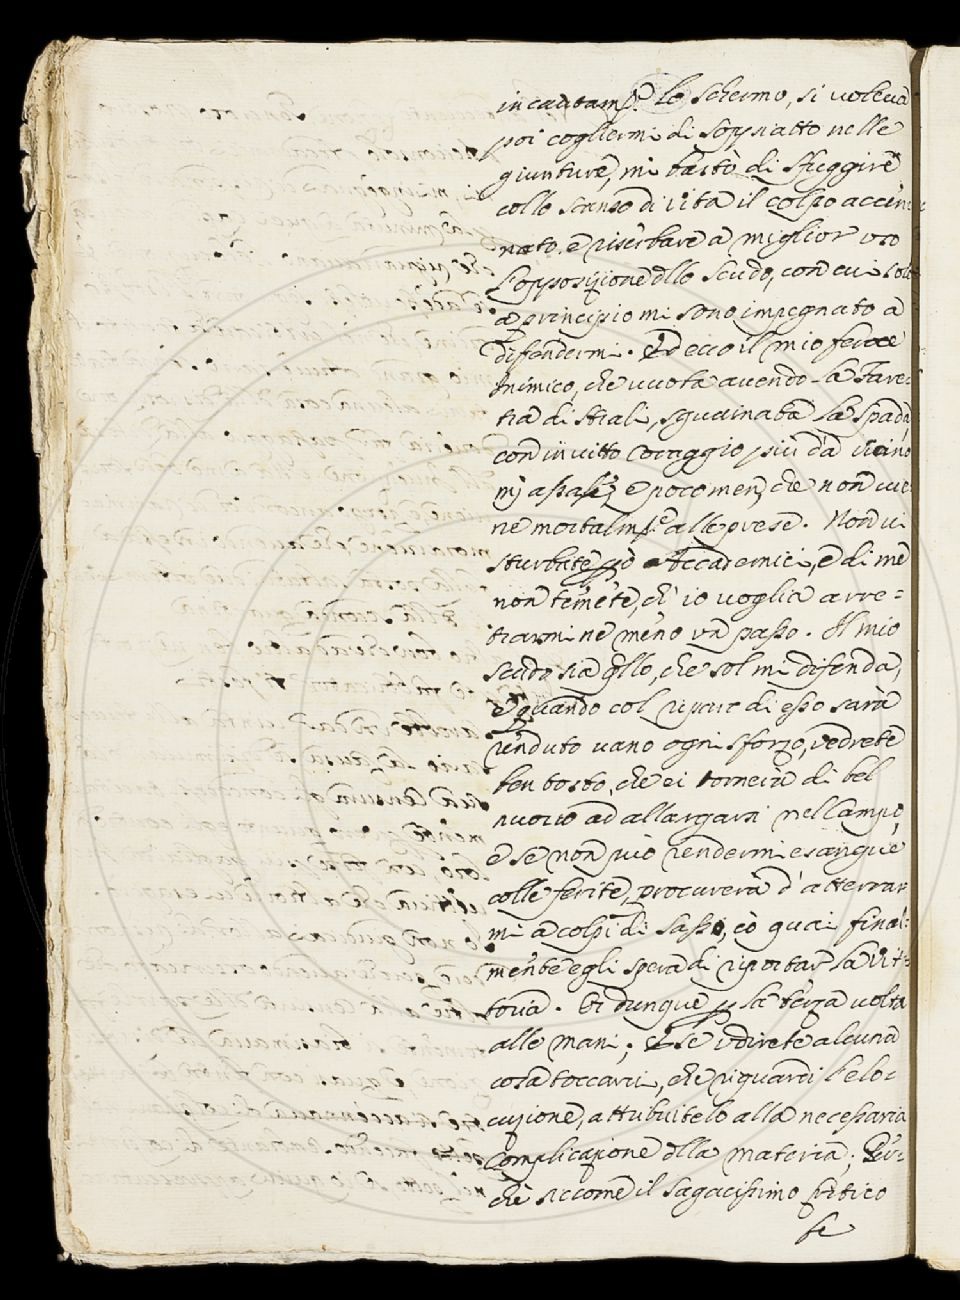 incautam.e lo schermo, si voleva
poi cogliermi di soppiatto nelle
giunture, mi bastò di sfuggire
collo scanso di vita il colpo accen
nato, e riserbare a miglior uso
l'opposizione dllo scudo, con cui solo
a principio mi sono impegnato a
difendermi. Ed ecco il mio feroce
Inimico, che vuota avendo la Fare=
tra di strali, sguainata la spada
con invitto coraggio più da vicino
mj assale, e poco men, che non vie=
ne mortalm.te alle prese. Non vi
sturbate pò Accademici, e di me
non temete, ch' io voglia arre=
trarmi ne meno un passo. Il mio
scudo sia qllo, che sol mi difenda,
e quando col riparo di esso sarà
renduto vano ogni sforzo, vedrete
ben tosto, che ei tornerà di bel
nuovo ad allargarsi nel Campo,
e se non può rendermi esangue
colle ferite, procurerà d'atterrar
mi a colpi di sasso, cò quai final=
mente egli spera di riportar la vit=
toria. Ei dunque p la terza volta
alle mani; E se udirete alcuna
cosa toccarsi, che riguardi l'elo=
cuzione, attribuitelo alla necessaria
Complicazione dlla materia; Per=
chè siccome il sagacissimo Critico
se